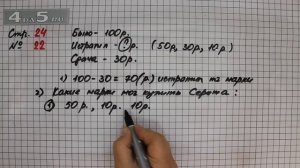 4.5.
Стр. 24
№ 22
Было - 100р.
Истратил - ?р. (50р, 30р, 10р.)
Сдача - 30р.
1) 100-30=70(р.) истратил на марки
2) Какие марки мог купить Серёжа:
① 50р., 10р. 10р.